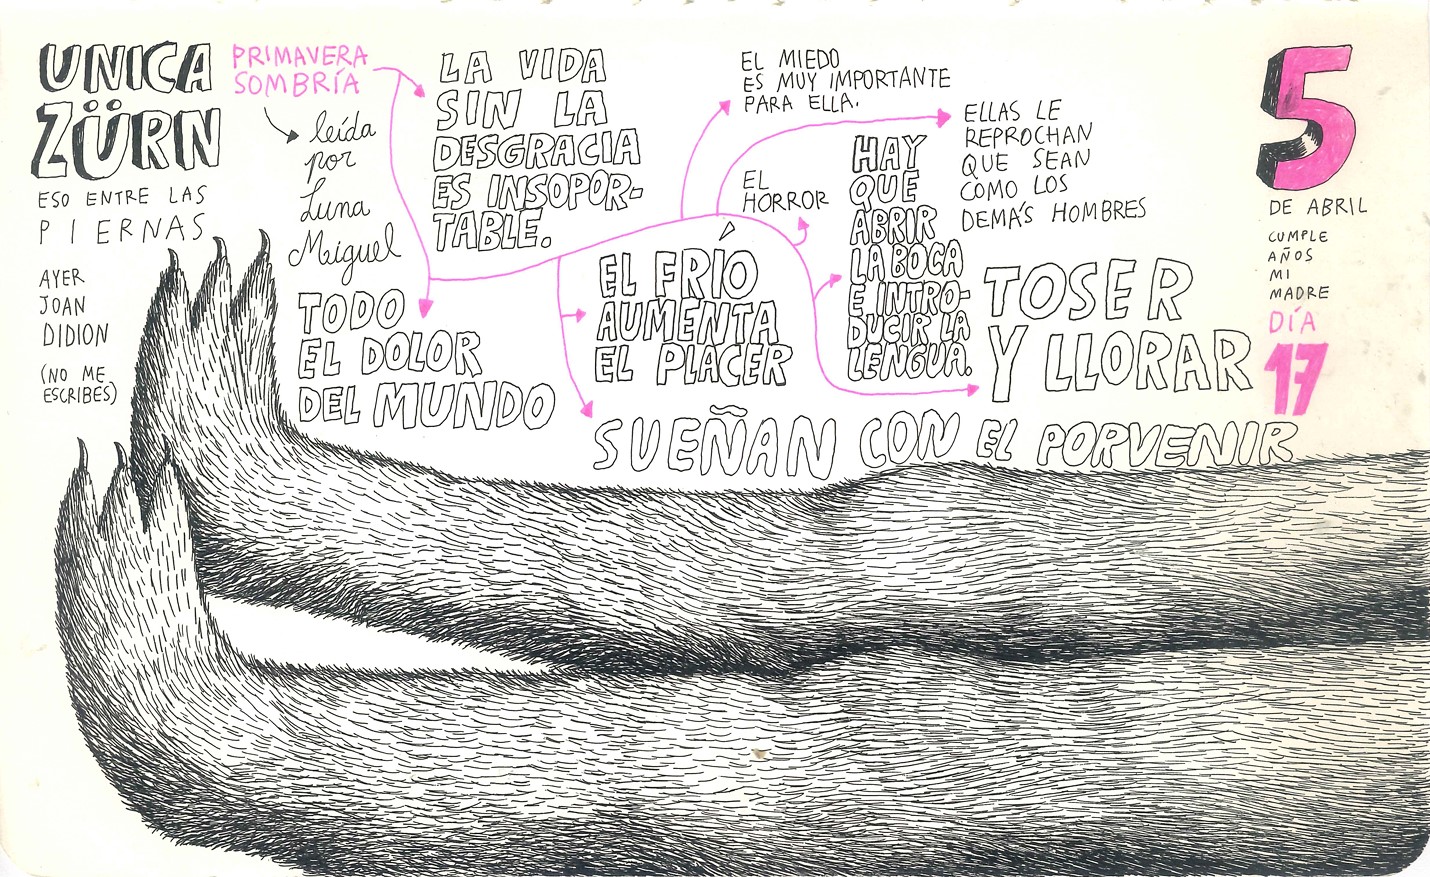 UNICA
ZÜRN
ESO ENTRE LAS
PIERNAS
AYER
JOAN
DIDION
(NO ME
ESCRIBES)
PRIMAVERA
SOMBRÍA
leída
por
Luna
Miguel
LA VIDA
SIN LA
DESGRACIA
ES INSOPOR-
TABLE.
TODO
EL DOLOR
DEL MUNDO
EL FRÍO
AUMENTA
EL PLACER
SUEÑAN CON EL PORVENIR
EL MIEDO
ES MUY IMPORTANTE
PARA ELLA.
EL
HORROR
HAY
QUE
ABRIR
LA BOCA
E INTRO-
DUCIR LA
LENGUA.
ELLAS LE
REPROCHAN
QUE SEAN
COMO LOS
DEMÁS HOMBRES
TOSER
Y LLORAR
5
DE ABRIL
CUMPLE
AÑOS
MI
MADRE
DÍA
17